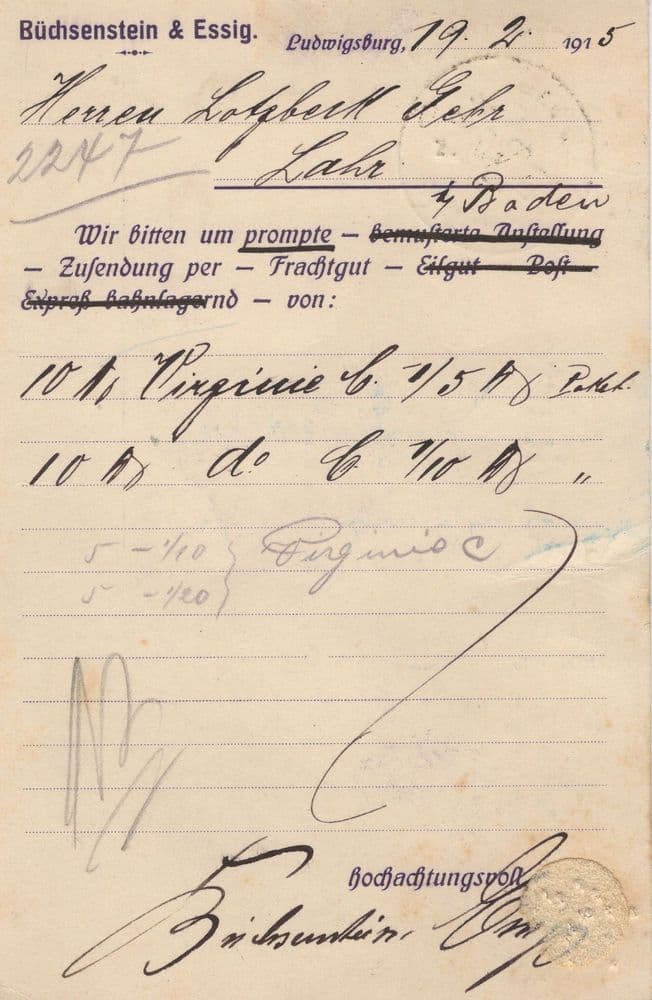 Büchsenstein & Essig.
Ludwigsburg, 19. 2. 1915
Herren Lotzbeck Gebr
2247
Lahr
i/ Baden
Wir bitten um prompte — bemusterte Anstellung
— Zusendung per — Frachtgut — Eilgut — Post —
Expreß bahnlagernd — von:
10 ℔ Virginie C. 1/5 ℔ Paket.
10 ℔ do C. 1/10 ℔ "
5 – 1/10 } Virginie C
5 – 1/20
Hochachtungsvoll
Büchsenstein & Essig